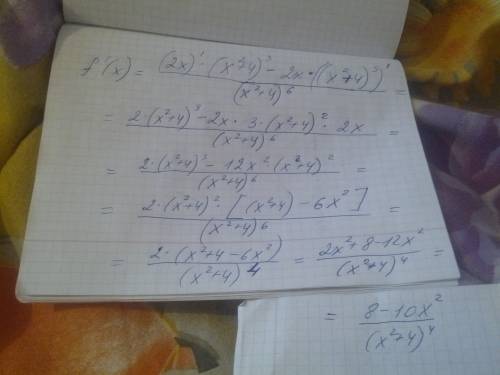 f'(x) = ((2x)' · (x²+4)³ - 2x · ((x²+4)³)') / (x²+4)⁶ =
= (2·(x²+4)³ - 2x · 3 · (x²+4)² · 2x) / (x²+4)⁶ =
= (2·(x²+4)³ - 12x² · (x²+4)²) / (x²+4)⁶ =
= (2·(x²+4)² · [(x²+4) - 6x²]) / (x²+4)⁶ =
= (2·(x²+4-6x²)) / (x²+4)⁴ = (2x²+8-12x²) / (x²+4)⁴ =
= (8-10x²) / (x²+4)⁴